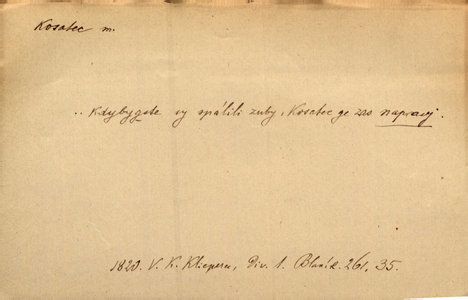 Kosatec m.
.. Kdybygste sy spálili zuby, Kosatec ge zas naprawj.
1820. V. K. Klicpera, Div. 1. Blaník. 261, 35.